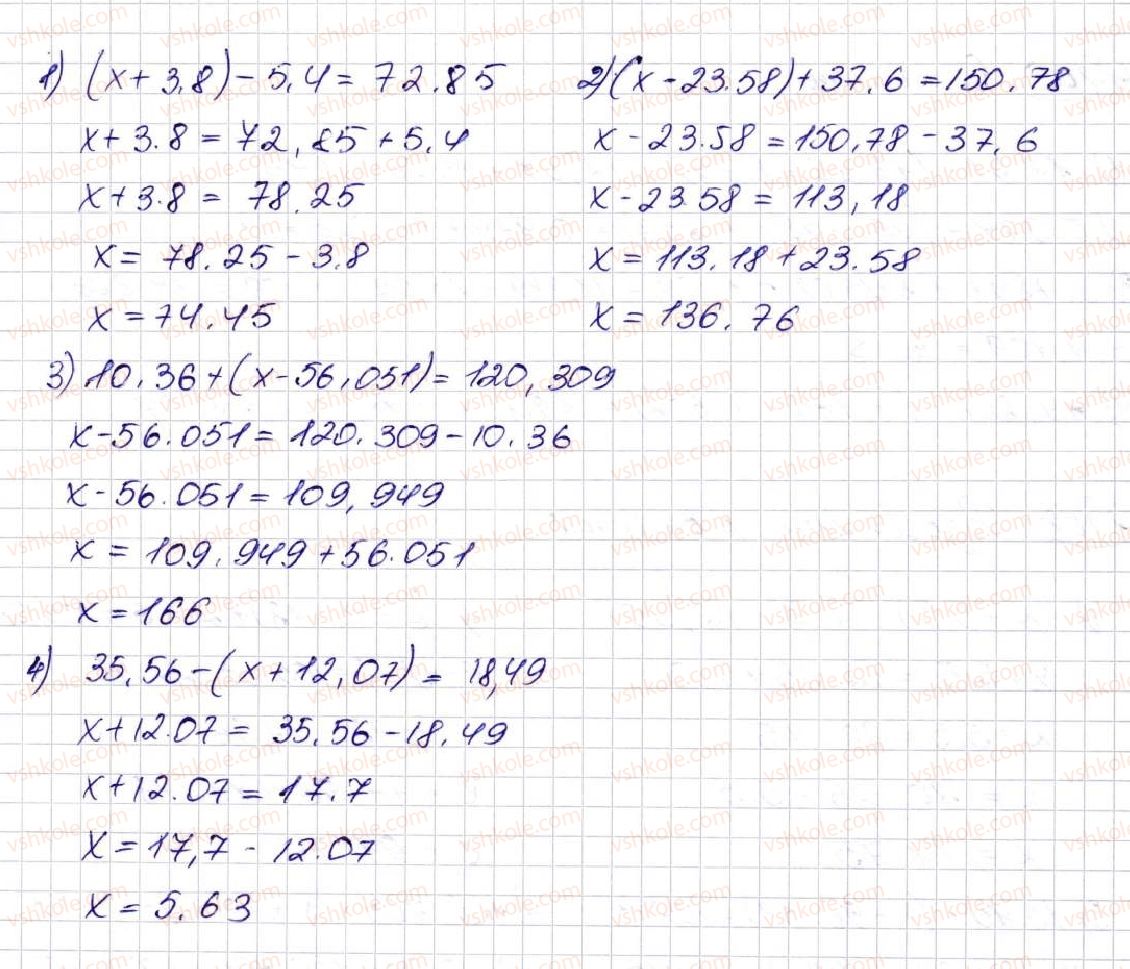 1) (x + 3,8) - 5,4 = 72.85
x + 3.8 = 72,85 + 5,4
x + 3.8 = 78.25
x = 78.25 - 3.8
x = 74.45
2) (x - 23.58) + 37.6 = 150.78
x - 23.58 = 150,78 - 37,6
x - 23.58 = 113,18
x = 113.18 + 23.58
x = 136.76
3) 10.36 + (x - 56,051) = 120,309
x - 56.051 = 120.309 - 10.36
x - 56.051 = 109,949
x = 109.949 + 56.051
x = 166
4) 35,56 - (x + 12,07) = 18,49
x + 12.07 = 35,56 - 18.49
x + 12.07 = 17.7
x = 17,7 - 12.07
x = 5.63
vshkole.com